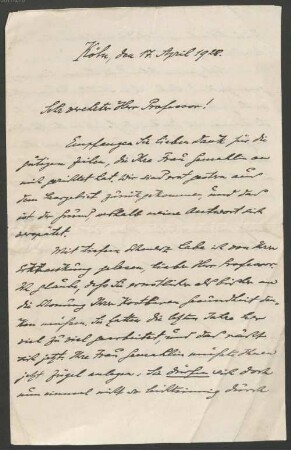 Köln, den 17. April 1928.
Sehr verehrter Herr Professor!
Empfangen Sie lieben Dank für die
gütigen Zeilen, die Ihre Frau Gemahlin an
mich gerichtet hat. Wir sind erst gestern aus
dem zurückgekommen, und das
ist der Grund, weshalb meine Antwort sich
verspätet.
Mit tiefem Schmerz habe ich von Ihrer
Erkrankung gelesen, lieber Herr Professor.
Ich glaube, dass Sie ernsthafter als bisher an
die Schonung Ihrer
müssen. Sie haben die letzten Jahre her
viel zu viel gearbeitet, und das rächt
sich jetzt. Ihre Frau Gemahlin müsste Ihnen
jetzt Zügel anlegen. Sie dürfen sich doch
nun einmal nicht so durch